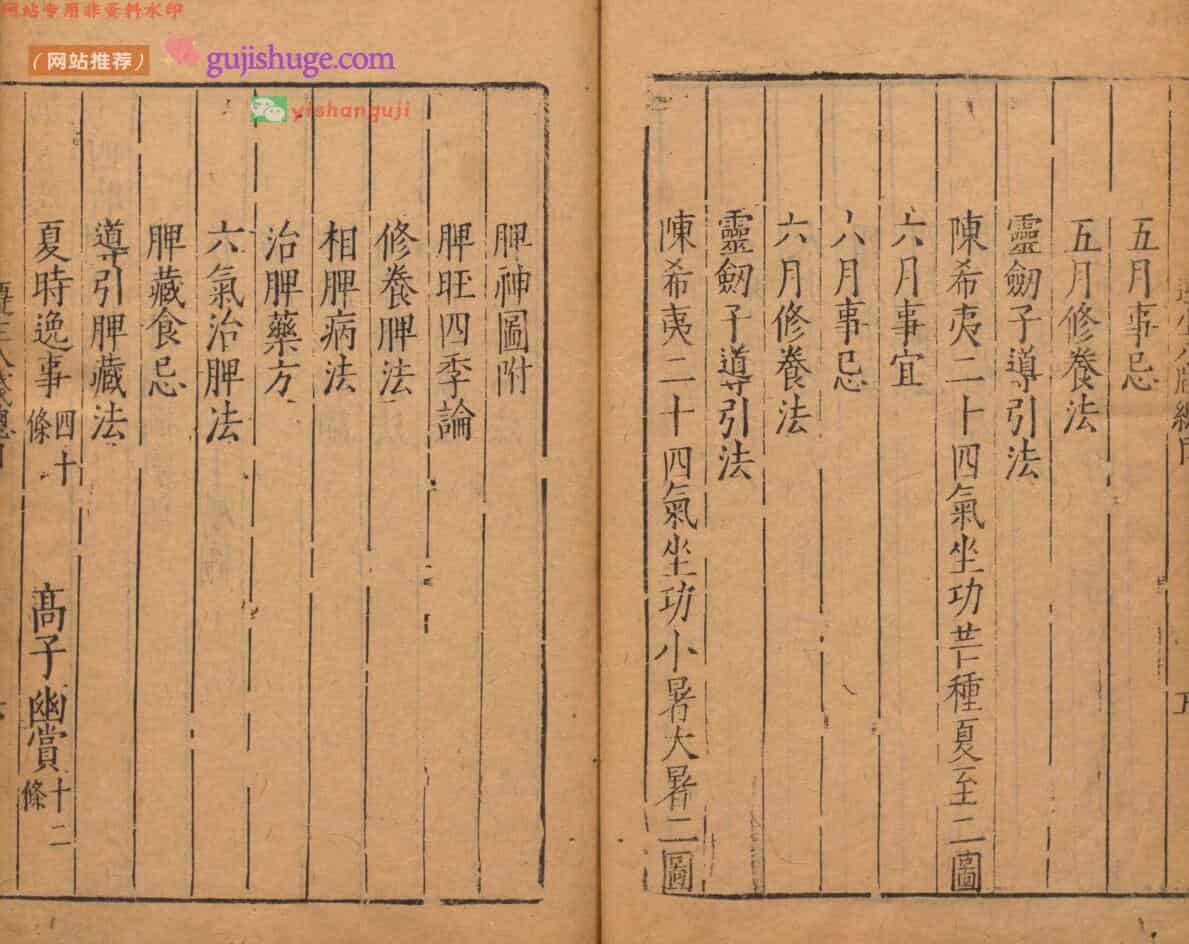 网站专用非资料水印
（网站推荐）
gujishuge.com
yishanguji
五月事忌
五月修養法
靈劒子導引法
陳希夷二十四氣坐功芒種夏至二圖
六月事宜
六月事忌
六月修養法
靈劒子導引法
陳希夷二十四氣坐功小暑大暑二圖
脾神圖附
脾旺四季論
修養脾法
相脾病法
治脾藥方
六氣治脾法
脾藏食忌
導引脾藏法
夏時逸事四十條 高子幽賞十二條